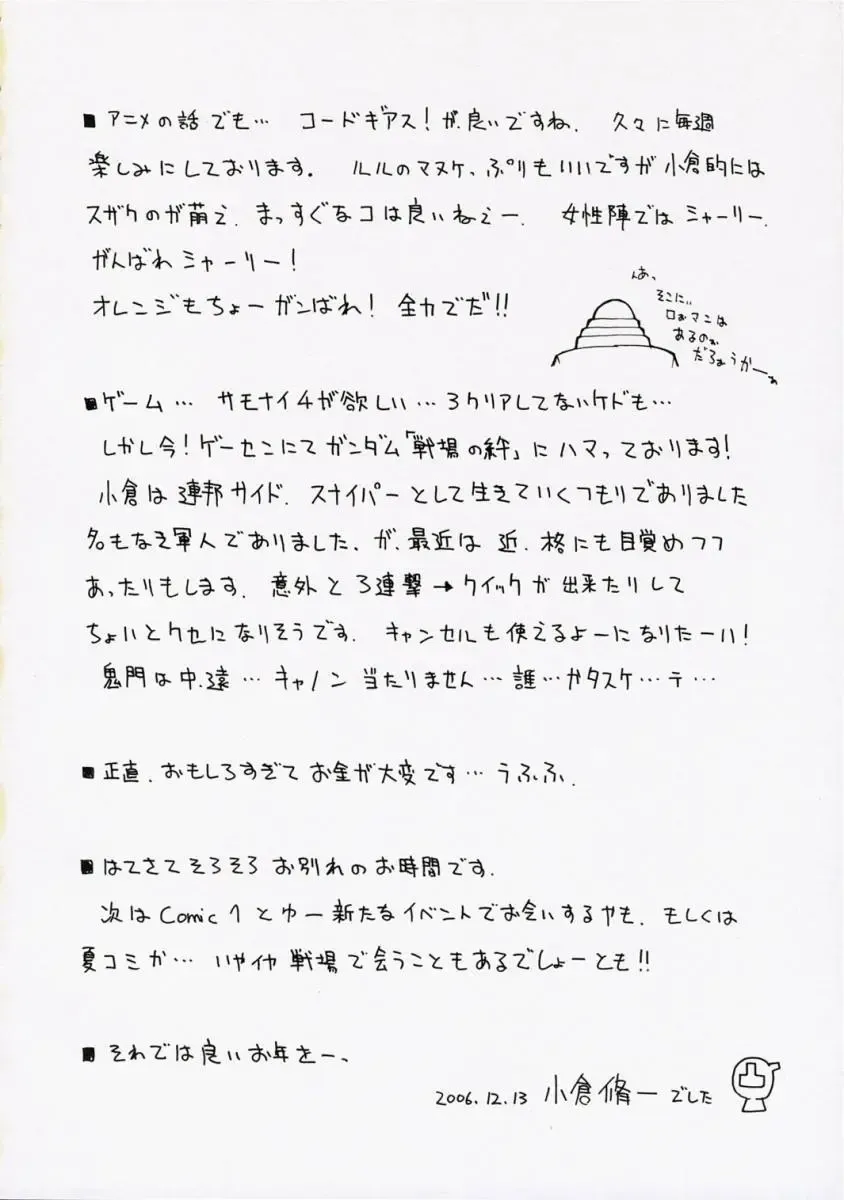 ■アニメの話でも… コードギアス!が良いですね. 久々に毎週
楽しみにしております. ルルのマヌケ、ぷりもいいですが小倉的には
スザクのが萌え. まっすぐなコは良いねぇー. 女性陣ではシャーリー.
がんばれシャーリー!
オレンジもちょーガンばれ! 全力でだ!!
んあ、
そこに、、
ロぉマンは
あるのぉ
だろぉうかーぁ
■ゲーム… サモナイ4が欲しい…3クリアしてないケドも…
しかし今!ゲーセンにてガンダム「戦場の絆」にハマっております!
小倉は連邦サイド. スナイパーとして生きていくつもりでありました
名もなき軍人でありました. が、最近は 近、格にも目覚めつつ
あったりもします. 意外と3連撃→クイックが出来たりして
ちょいとクセになりそうです. キャンセルも使えるよーになりたーい!
鬼門は中、遠… キャノン当たりません…誰…かタスケ…テ…
■正直. おもしろすぎてお金が大変です… うふふ.
■はてさてそろそろ お別れのお時間です.
次はComic1とゆー新たなイベントでお会いするやも. もしくは
夏コミか… いやイヤ戦場で会うこともあるでしょーとも!!
■それでは良いお年をー、
2006.12.13 小倉脩一でした